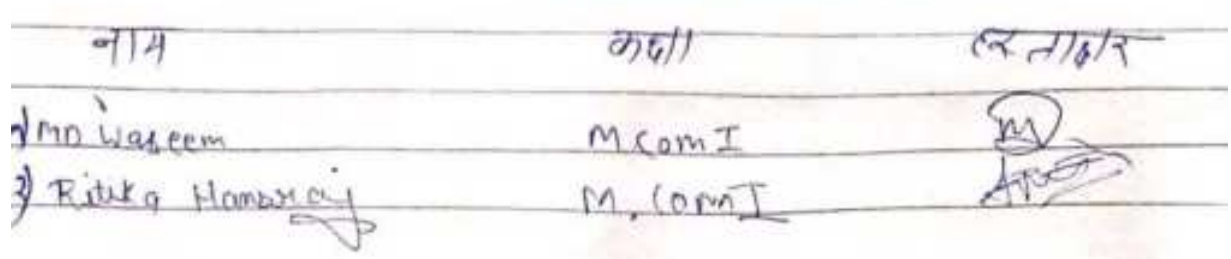 नाम कक्षा हस्ताक्षर
१) MD Waseem M.Com I
२) Ritika Hansraj M.Com I